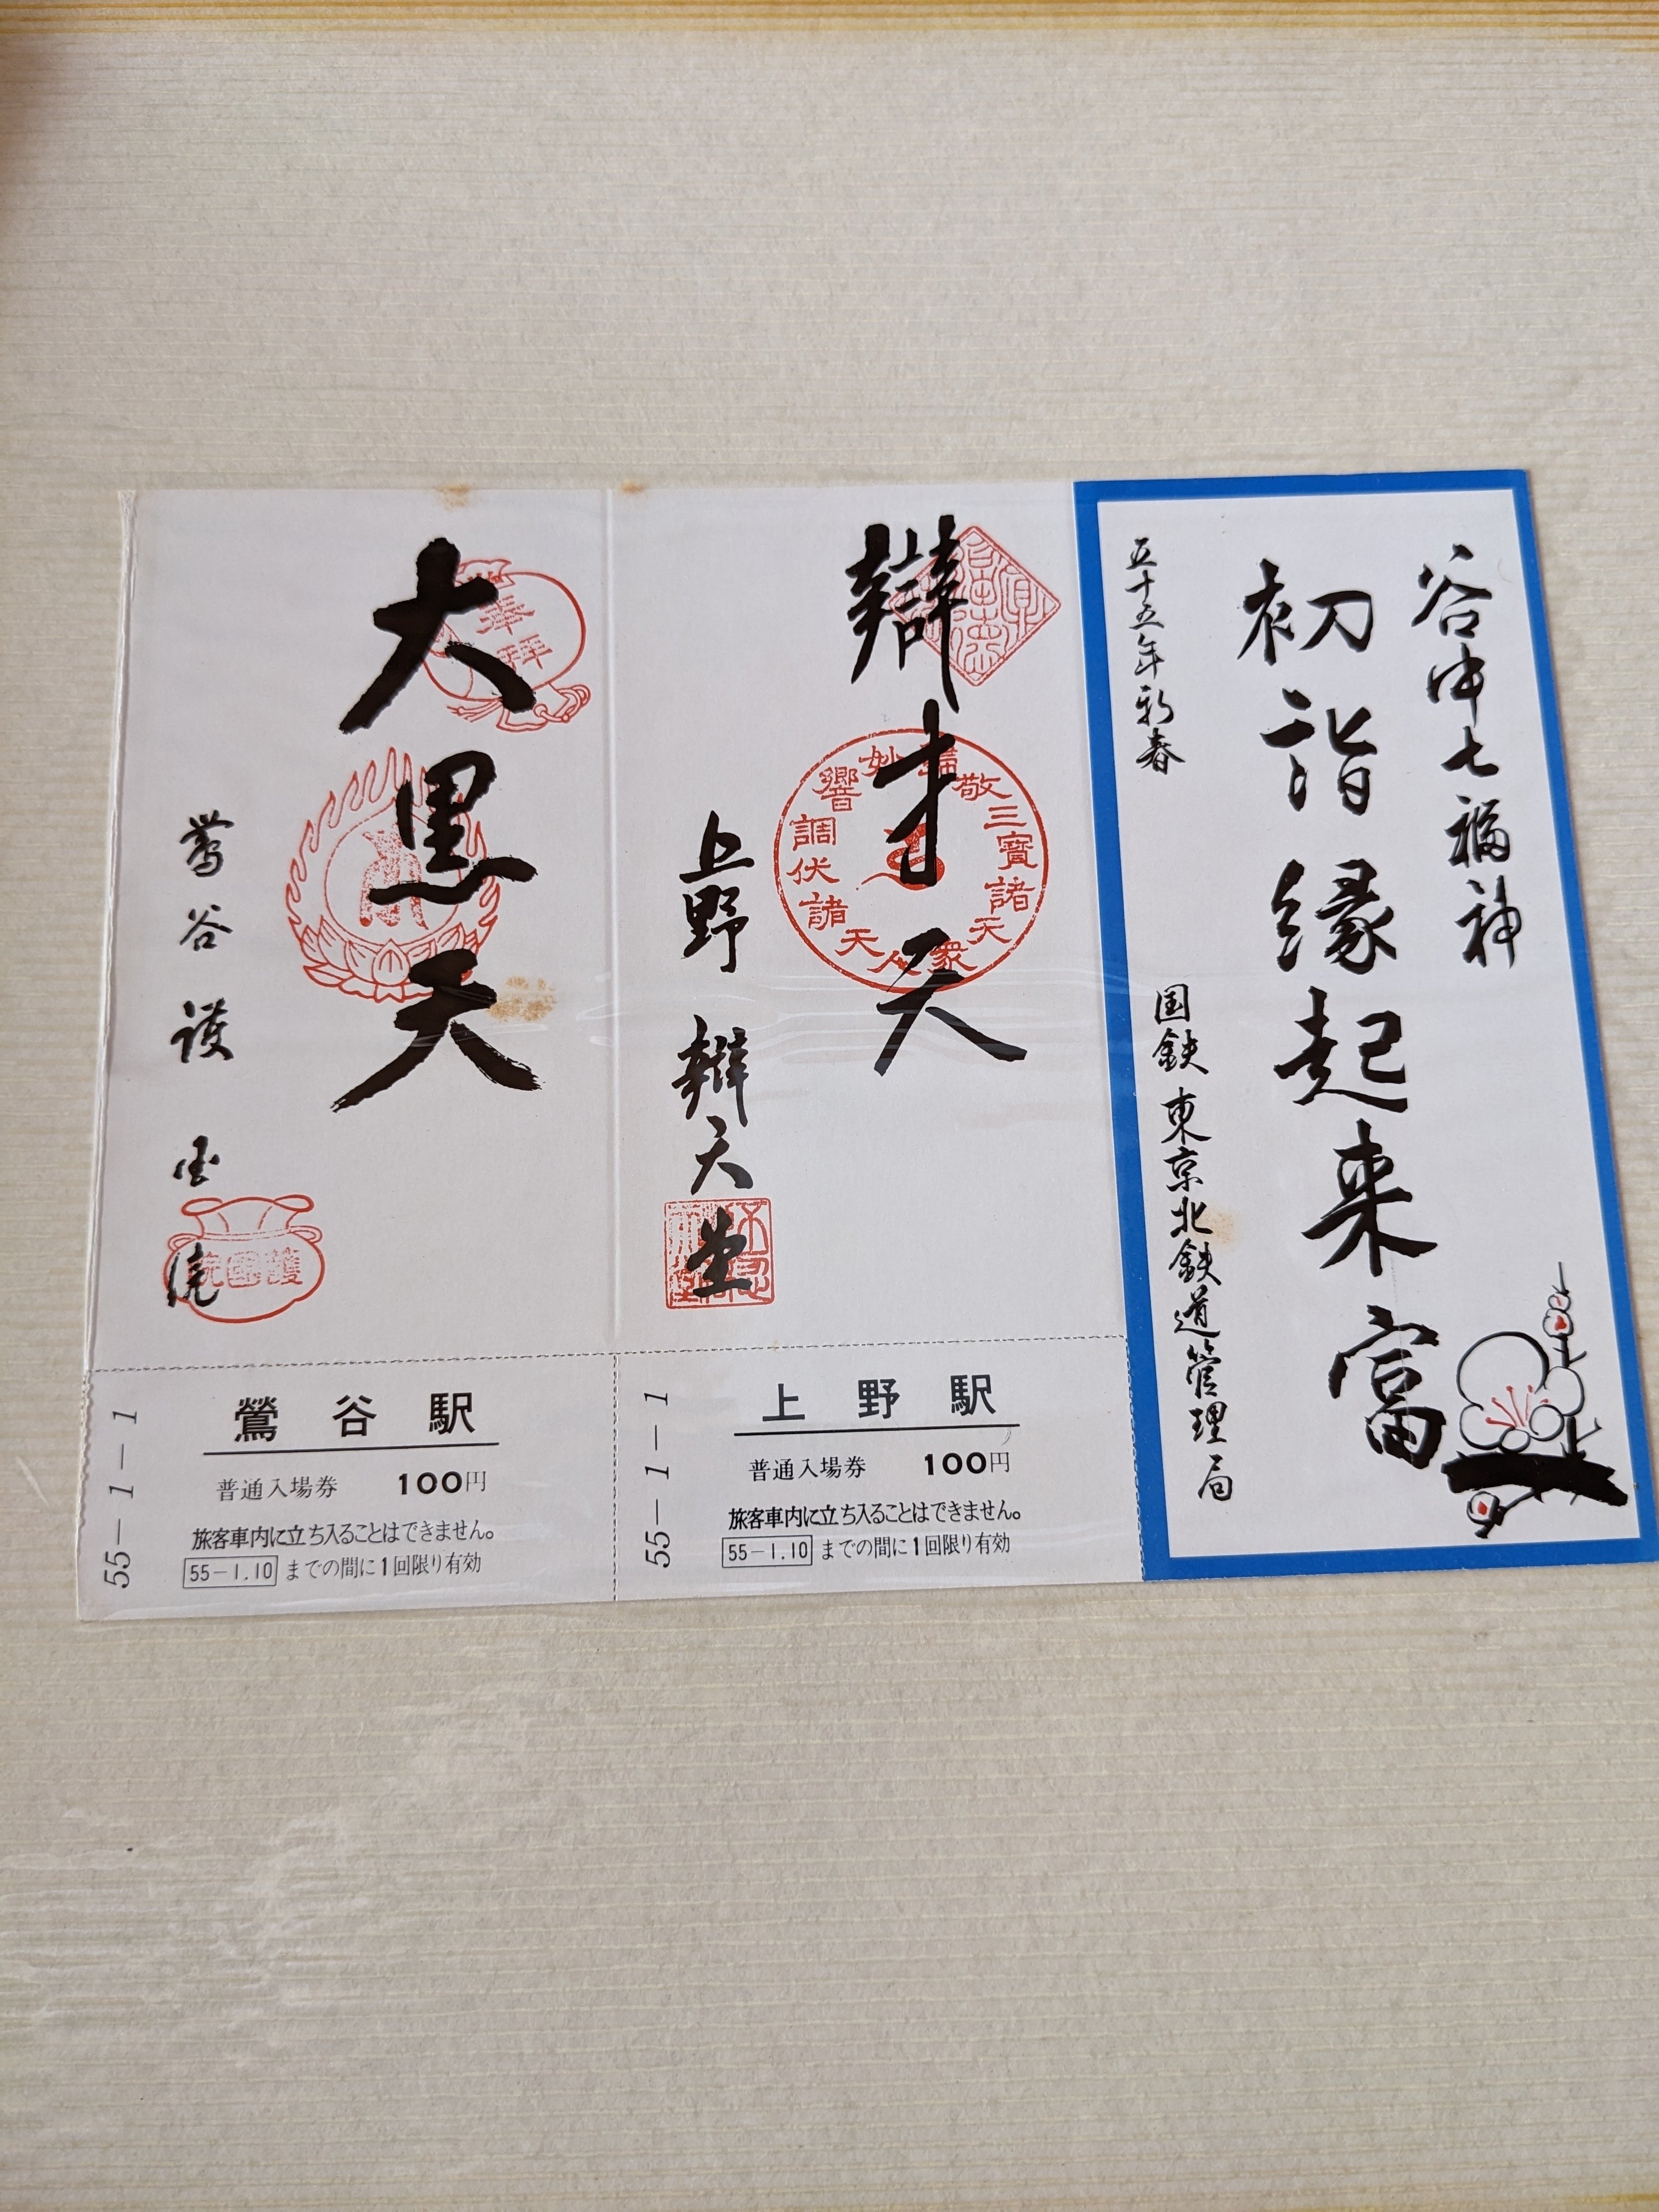 谷中七福神
初詣縁起来富
五十五年新春
国鉄 東京北鉄道管理局
辯才天
上野 辯天堂
上野駅
普通入場券 100円
旅客車内に立ち入ることはできません。
55-1.10 までの間に1回限り有効
55-1-1
大黒天
奉拝
鶯谷 護国院
護國院
鶯谷駅
普通入場券 100円
旅客車内に立ち入ることはできません。
55-1.10 までの間に1回限り有効
55-1-1